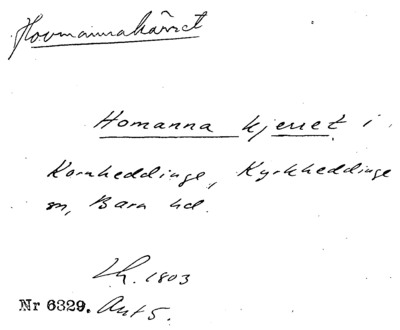 Hovmannakärret
Homanna kjerret i
Kornheddinge, Kyrkheddinge
sn, Bara hd.
Lh. 1803
Nr 6329. Akt 5.